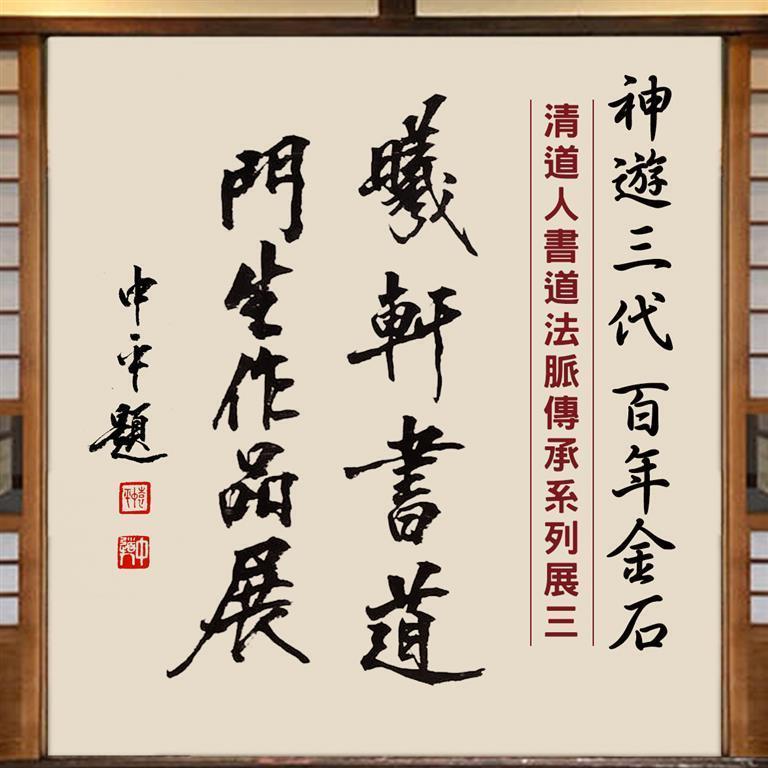 神遊三代 百年金石
清道人書道法脈傳承系列展三
曦軒書道
門生作品展
中平題